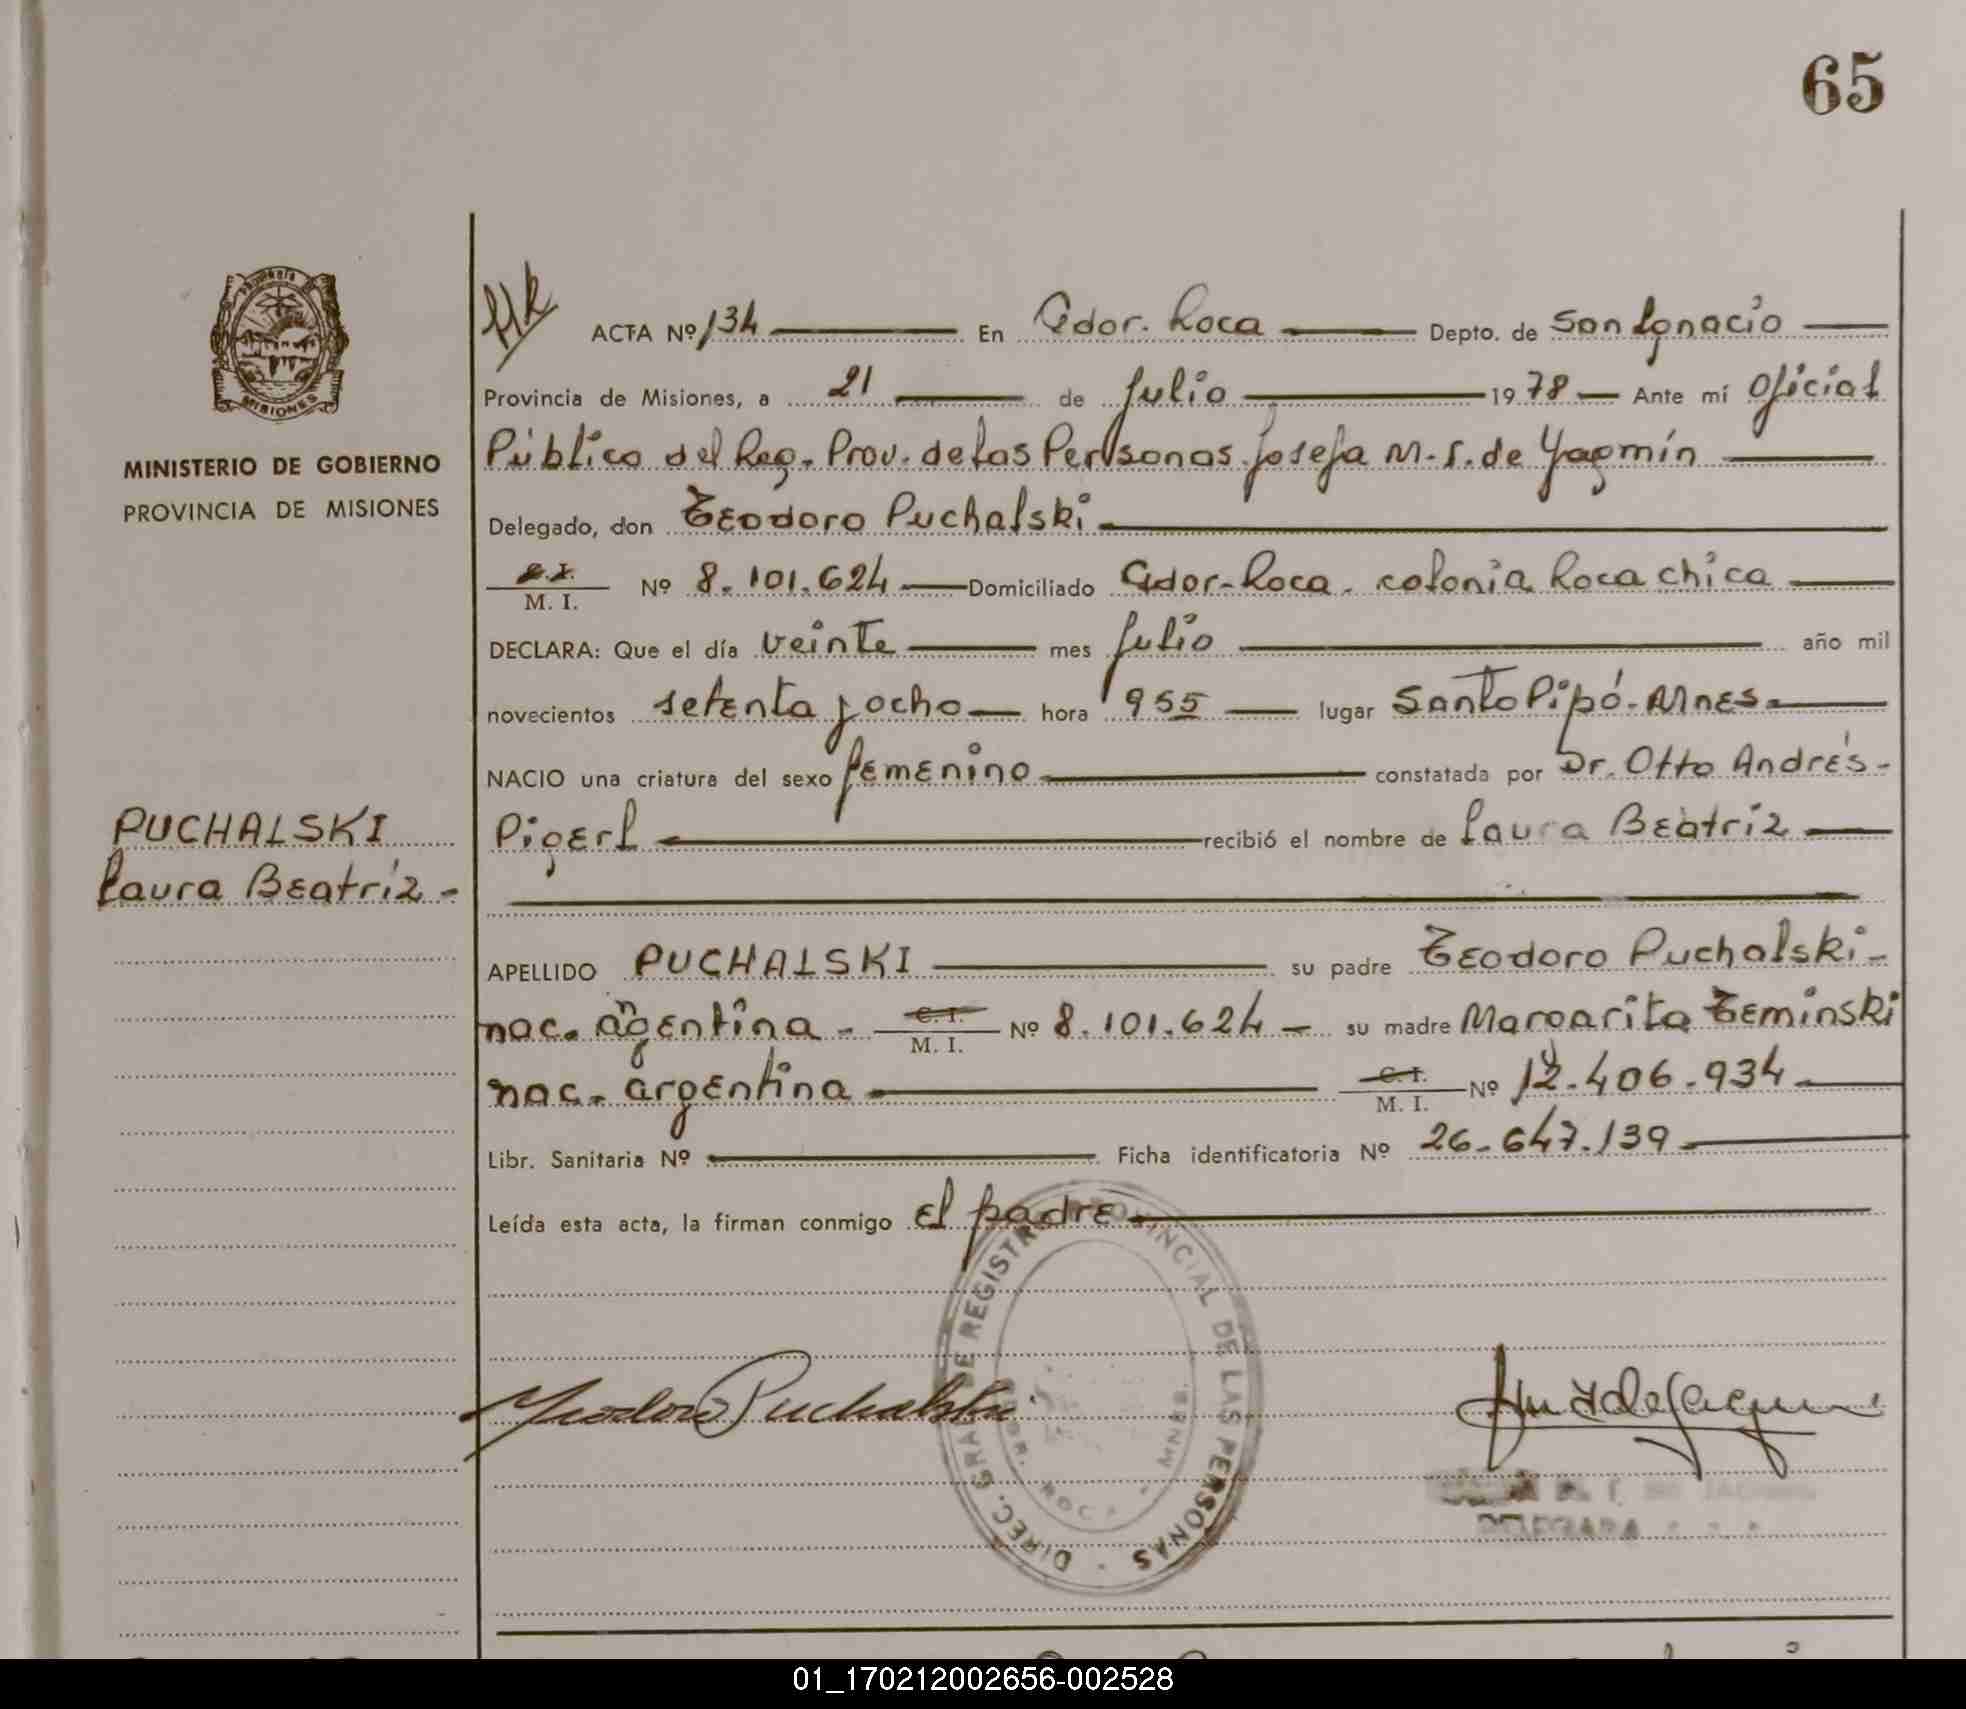 65
MISIONES
MINISTERIO DE GOBIERNO
PROVINCIA DE MISIONES
PUCHALSKI
Laura Beatriz -
ACTA Nº 134 En Gdor. Roca Depto. de San Ignacio
Provincia de Misiones, a 21 de Julio 1978 Ante mí Oficial
Público del Reg. Prov. de las Personas Josefa M. S. de Yagmín
Delegado, don Teodoro Puchalski
C. I.
M. I. Nº 8.101.624 Domiciliado Gdor. Roca - colonia Roca chica
DECLARA: Que el día veinte mes Julio año mil
novecientos setenta y ocho hora 955 lugar Santo Pipó - Mnes
NACIO una criatura del sexo femenino constatada por Dr. Otto Andrés -
Pigerl recibió el nombre de Laura Beatriz
APELLIDO PUCHALSKI su padre Teodoro Puchalski -
nac. argentina - C. I.
M. I. Nº 8.101.624 - su madre Margarita Teminski
nac. argentina C. I.
M. I. Nº 12.406.934
Libr. Sanitaria Nº Ficha identificatoria Nº 26-647.139
Leída esta acta, la firman conmigo el padre
DIREC. GRAL DE REGISTRO PROVINCIAL DE LAS PERSONAS
GOR. ROCA - MNES.
Teodoro Puchalski
DELEGADA
01_170212002656-002528